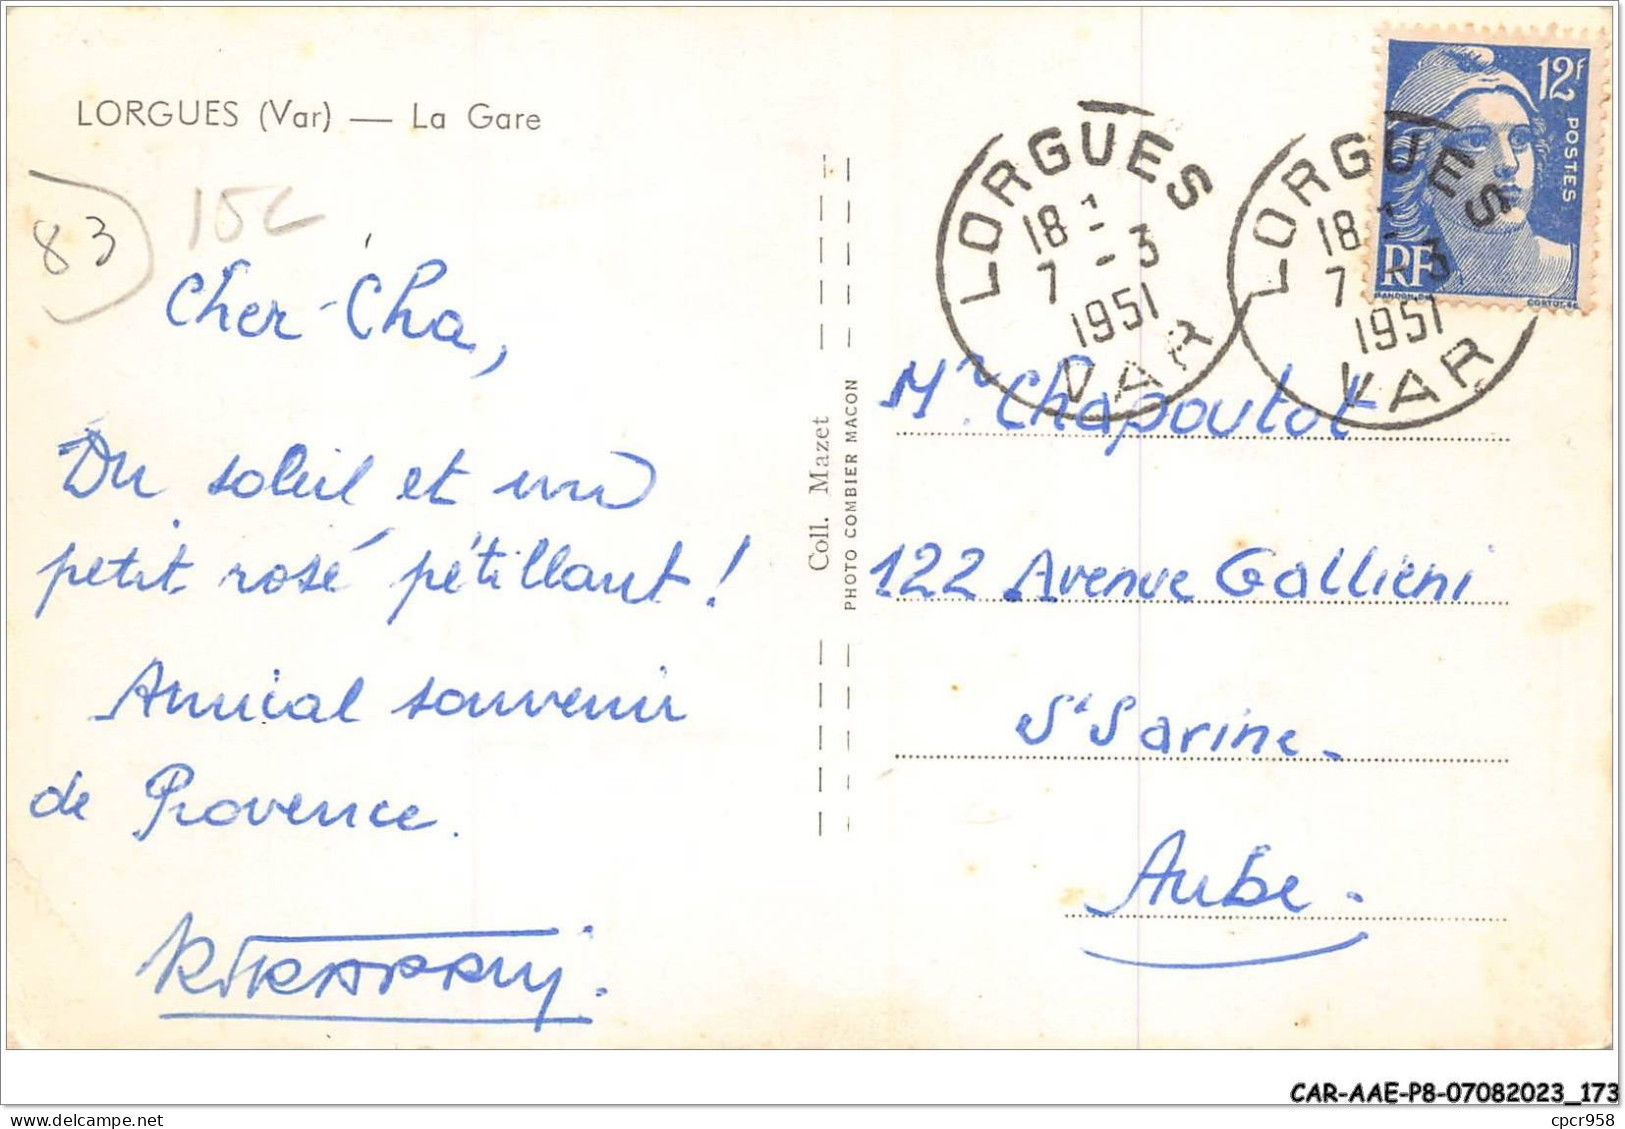 LORGUES (Var) — La Gare
83
15€
Cher Cha,
Du soleil et un
petit rosé pétillant !
Amical souvenir
de Provence.
Coll. Mazet
PHOTO COMBIER MACON
12f
POSTES
RF
LORGUES
18 -
7 - 3
1951
VAR
LORGUES
18 -
7 - 3
1951
VAR
Mr Chapoutot
122 Avenue Gallieni
St Savine.
Aube.
CAR-AAE-P8-07082023_173
www.delcampe.net
cpcr958